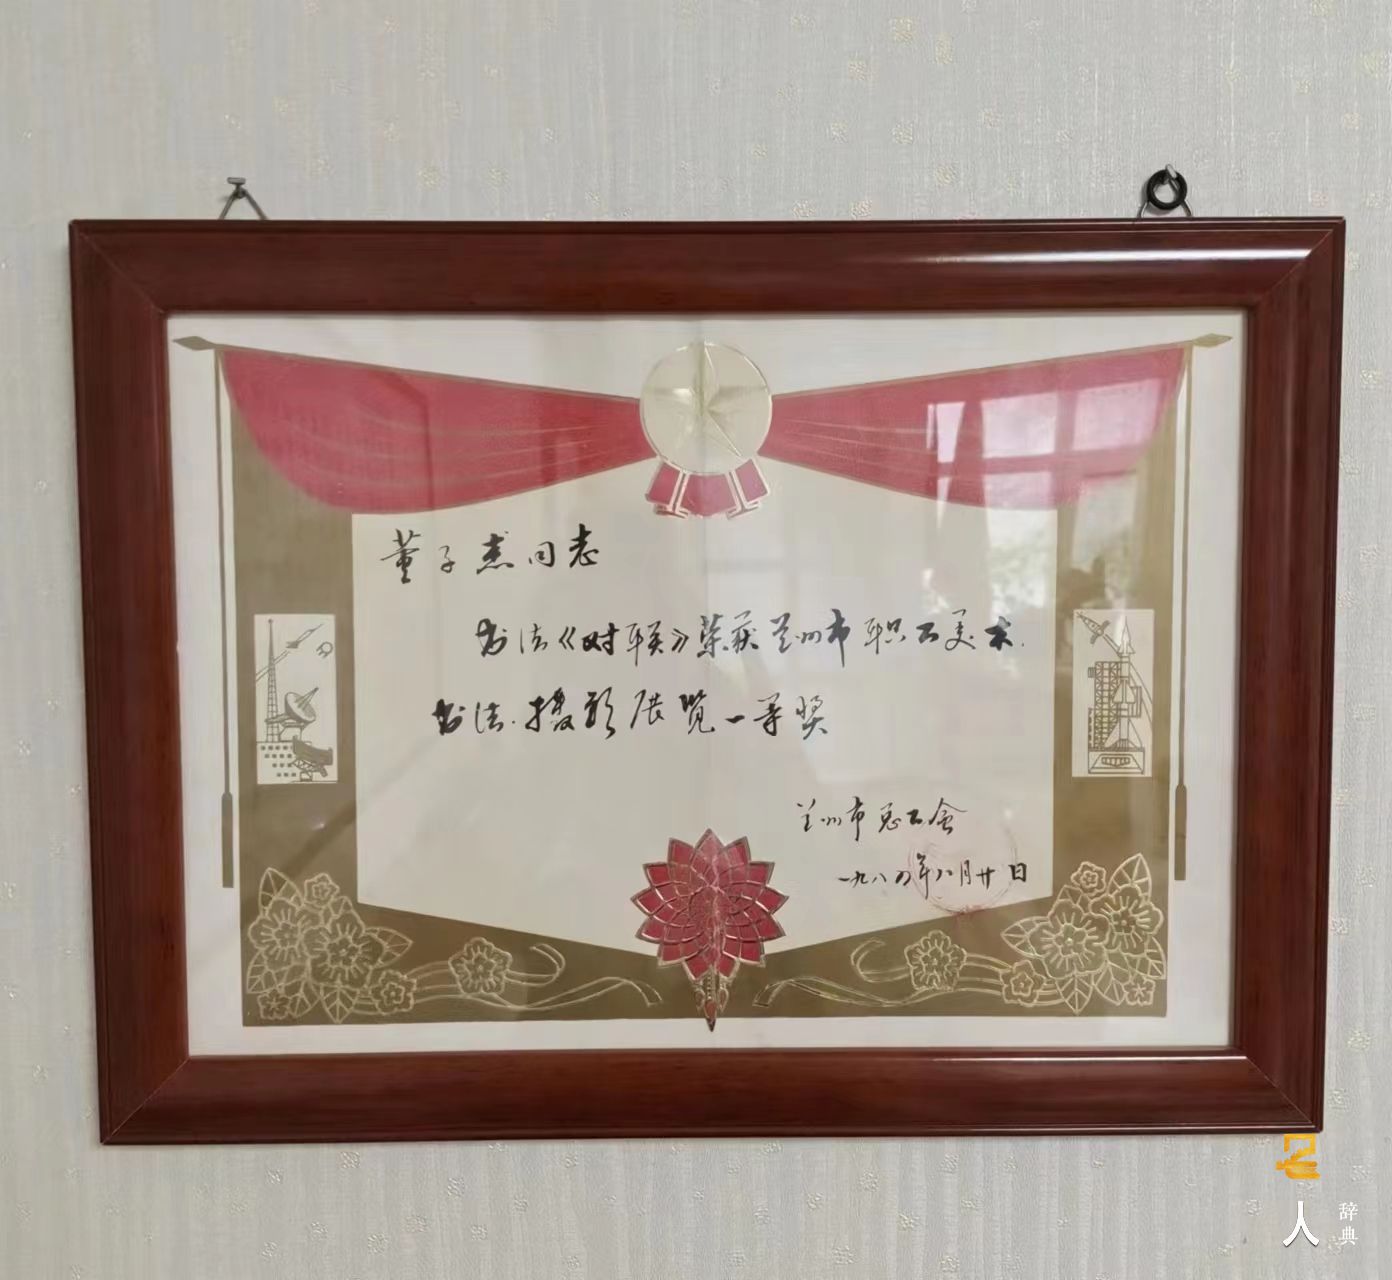 董子杰同志
书法《对联》荣获兰州市职工美术.
书法.摄影展览一等奖
兰州市总工会
一九八四年八月廿日
名人
辞典